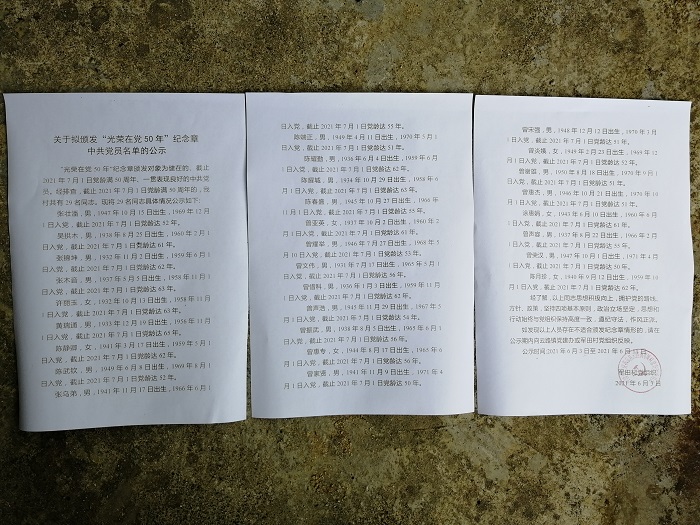 关于拟颁发“光荣在党50年”纪念章
中共党员名单的公示
“光荣在党50年”纪念章颁发对象为健在的、截止
2021年7月1日党龄满50周年、一贯表现良好的中共党
员。经排查，截止2021年7月1日党龄满50周年的，我
村共有29名同志。现将29名同志具体情况公示如下：
男，1947年10月15日出生，1969年12月
1日入党，截止2021年7月1日党龄达52年。
男，1938年8月25日出生，1960年2月
1日入党，截止2021年7月1日党龄达61年。
张锡坤，男，1932年11月2日出生，1959年6月1
日入党，截止2021年7月1日党龄达62年。
男，1937年5月5日出生，1958年11月1
日入党，截止2021年7月1日党龄达63年。
许丽玉，女，1932年10月13日出生，1958年11月
1日入党，截止2021年7月1日党龄达63年。
男，1933年12月19日出生，1956年11月
1日入党，截止2021年7月1日党龄达65年。
陈静卿，女，1941年3月17日出生，1959年5月1
日入党，截止2021年7月1日党龄达62年。
陈武钦，男，1949年6月8日出生，1969年8月1
日入党，截止2021年7月1日党龄达52年。
张乌弟，男，1941年11月17日出生，1966年6月1
日入党，截止2021年7月1日党龄达55年。
男，1949年4月11日出生，1970年5月1
日入党，截止2021年7月1日党龄达51年。
男，1936年6月4日出生，1959年6月1
日入党，截止2021年7月1日党龄达62年。
男，1934年10月29日出生，1958年6月
1日入党，截止2021年7月1日党龄达63年。
陈春泉，男，1945年10月27日出生，1966年
11月1日入党，截止2021年7月1日党龄达55年。
女，1937年10月2日出生，1960年2月
1日入党，截止2021年7月1日党龄达61年。
男，1946年7月27日出生，1968年5
月10日入党，截止2021年7月1日党龄达53年。
曾文伟，男，1931年7月17日出生，1965年5月1
日入党，截止2021年7月1日党龄达56年。
男，1936年1月3日出生，1959年11月
1日入党，截止2021年7月1日党龄达62年。
曾声浩，男，1945年11月29日出生，1967年5
月1日入党，截止2021年7月1日党龄达54年。
男，1938年8月5日出生，1965年6月1
日入党，截止2021年7月1日党龄达56年。
曾惠专，女，1944年8月17日出生，1965年6
月1日入党，截止2021年7月1日党龄达56年。
男，1941年11月9日出生，1971年4
月1日入党，截止2021年7月1日党龄达50年。
男，1948年12月12日出生，1970年5月
1日入党，截止2021年7月1日党龄达51年。
女，1949年2月25日出生，1969年12
月1日入党，截止2021年7月1日党龄达52年。
男，1950年8月18日出生，1970年9月1
日入党，截止2021年7月1日党龄达51年。
曾惠杰，男，1946年10月21日出生，1970年10月
1日入党，截止2021年7月1日党龄达51年。
女，1943年6月10日出生，1960年6月
1日入党，截止2021年7月1日党龄达61年。
男，1937年8月22日出生，1966年2月
1日入党，截止2021年7月1日党龄达55年。
男，1947年10月1日出生，1971年4月
1日入党，截止2021年7月1日党龄达50年。
女，1946年9月12日出生，1959年10
月1日入党，截止2021年7月1日党龄达62年。
经了解，以上同志思想积极向上，拥护党的路线、
方针、政策，坚持四项基本原则，政治立场坚定，思想和
行动始终与党组织保持高度一致，遵纪守法，作风正派。
如发现以上人员存在不适合颁发纪念章情形的，请在
公示期内向云路镇党建办或军田村党组织反映。
公示时间：2021年6月3日至2021年6月
军田村
2021年6月3日